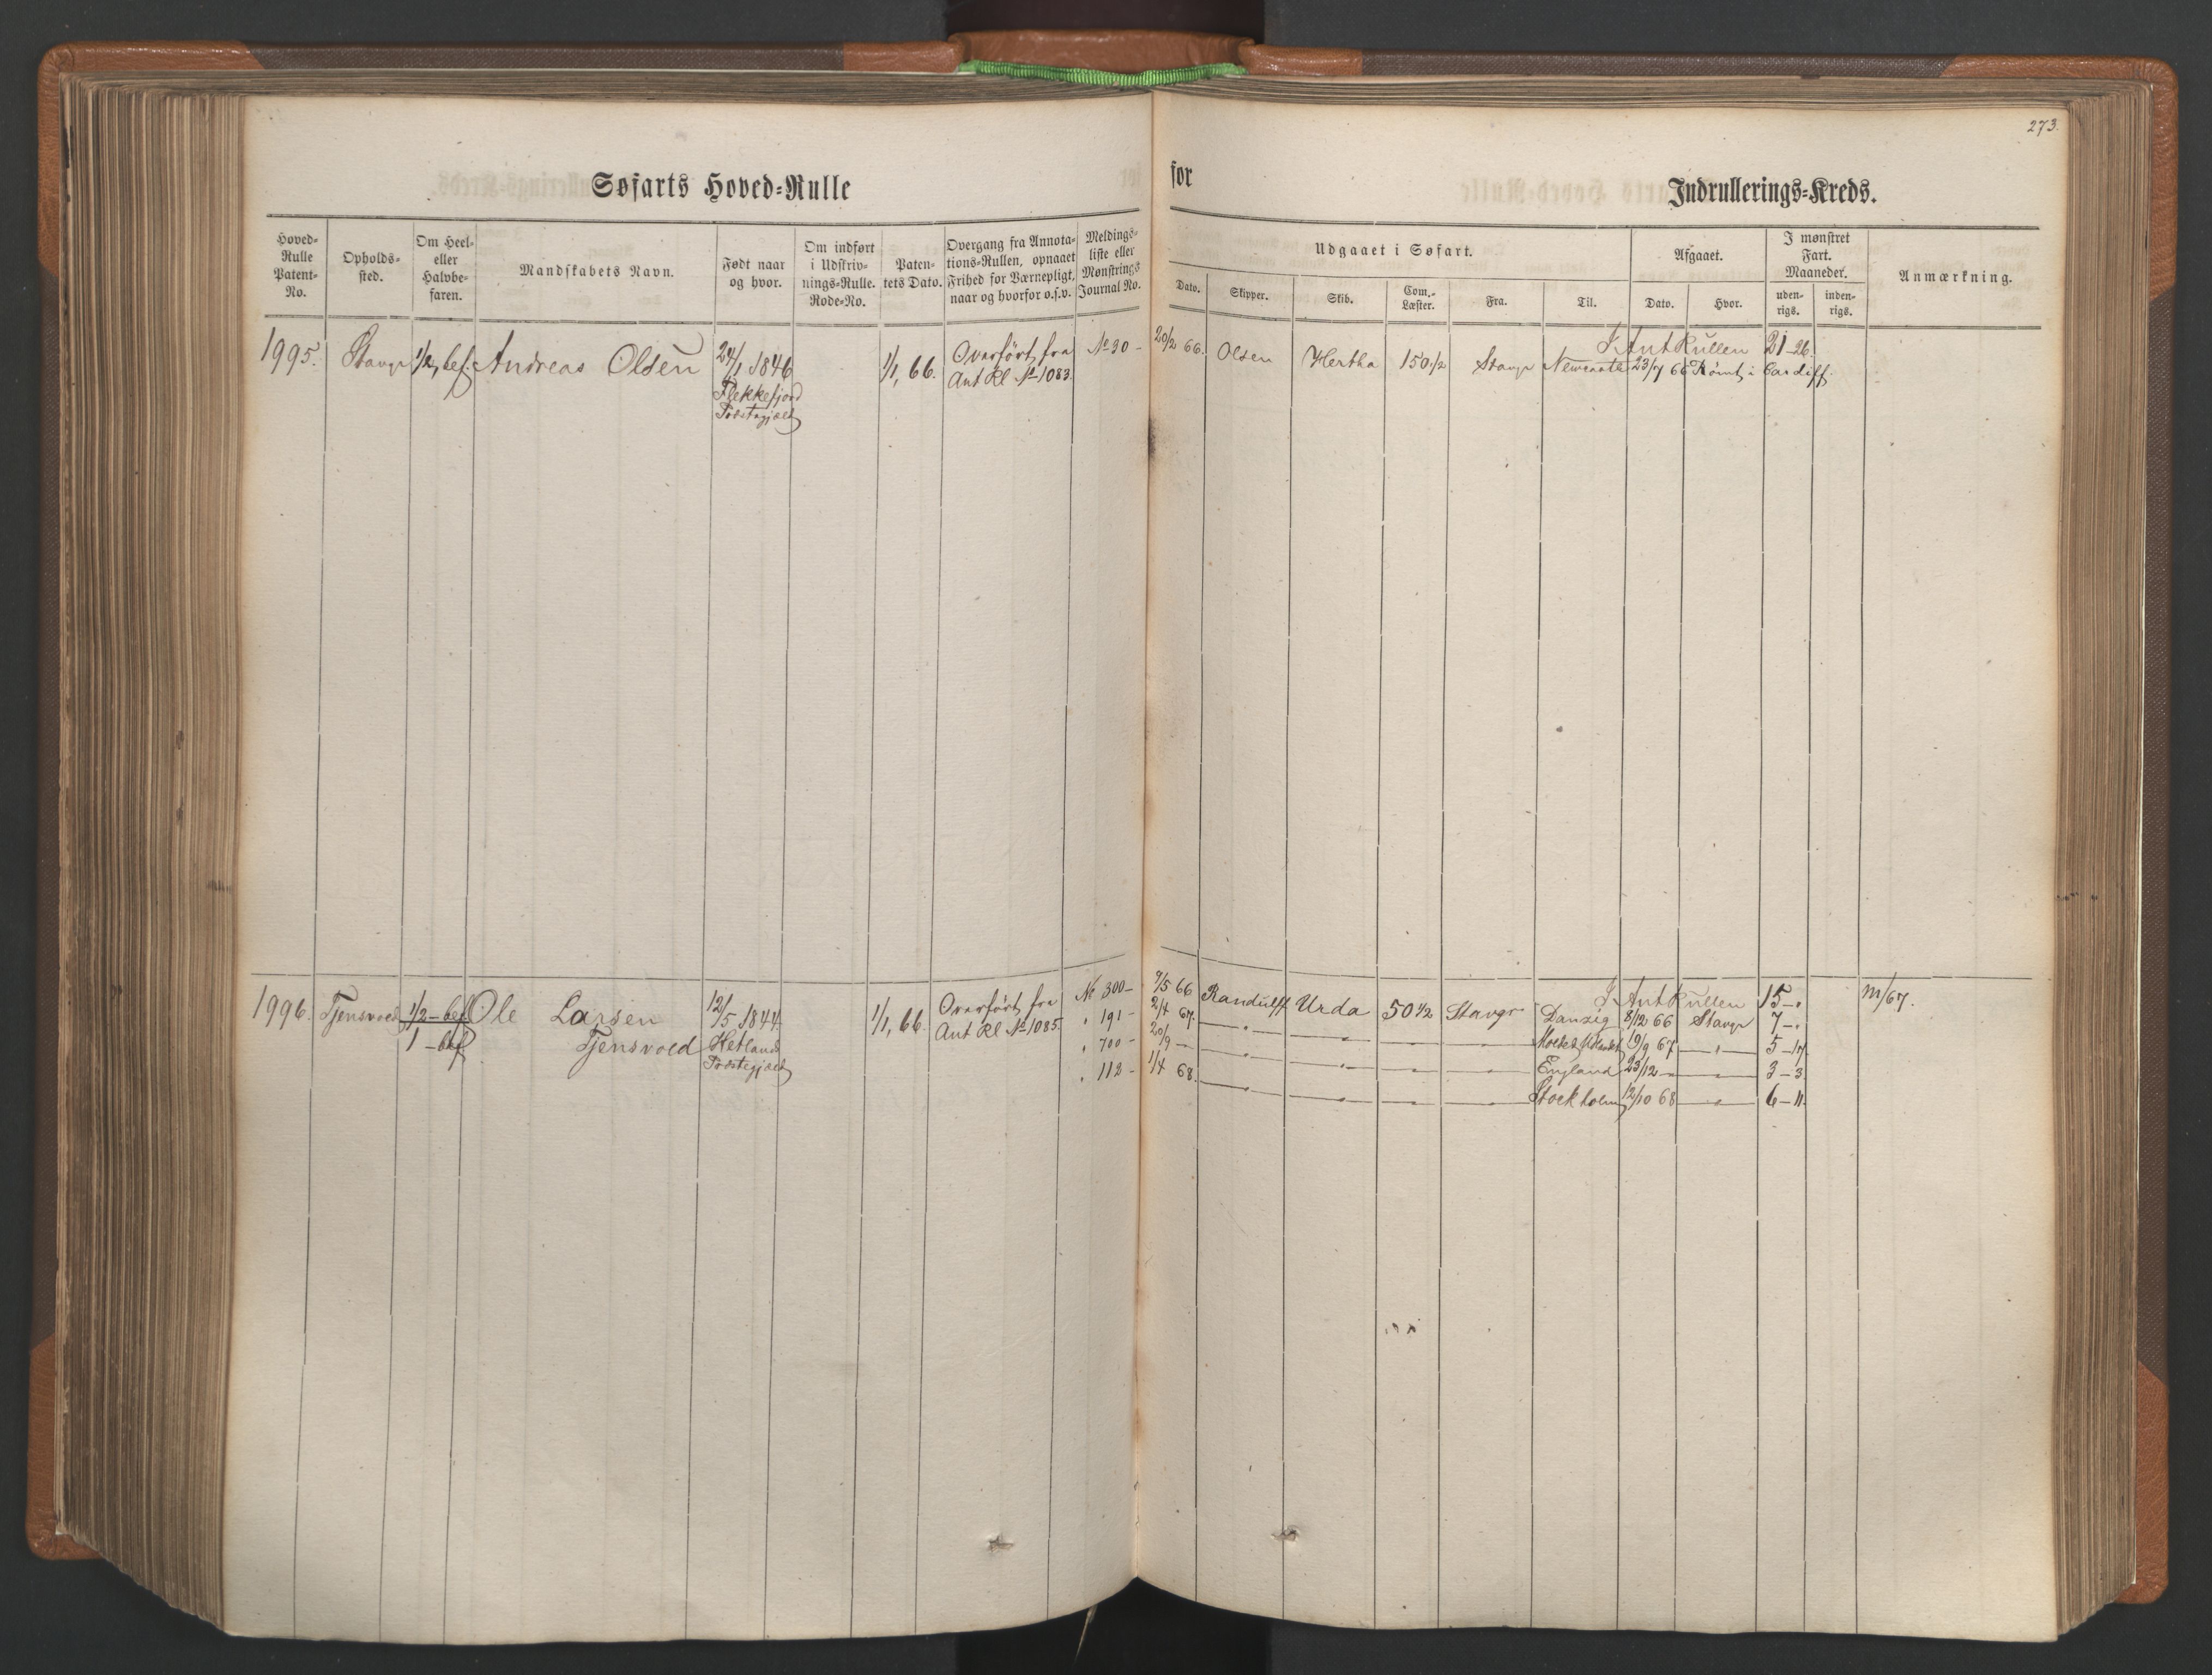 273.
Søfarts Hoved-Rulle for Indrullerings-Kreds.
Hoved-Rulle Patent-No.
Opholds-sted.
Om Heel- eller Halvbe-faren.
Mandskabets Navn.
Født naar og hvor.
Om indført i Udskriv-nings-Rulle. Rode-No.
Paten-tets Dato.
Overgang fra Annota-tions-Rullen, opnaaet Frihed for Værnepligt, naar og hvorfor o.s.v.
Meldings-liste eller Mønstrings Journal No.
Udgaaet i Søfart.
Dato.
Skipper.
Skib.
Com.-Læster.
Fra.
Til.
Afgaaet.
Dato.
Hvor.
I mønstret Fart. Maaneder.
uden-rigs.
inden-rigs.
Anmærkning.
1995. Stavgr 1/2 bef. Andreas Olsen 24/1 1846 1/1, 66. Overført fra No 30 - 20/2 66. Olsen Hertha 150 1/2 Stavgr
Flekkefjord Ant Rl No 1083.
Præstegjeld
I Ant Rullen 21-26.
Newcastle 23/7 66 Rømt i Cardiff.
1996. Tjensvold 1/2 - bef. Ole Larsen 12/5 1844 1/1, 66. Overført fra No 300 - 9/5 66 Randulff Urda 50 1/2 Stavgr
1 - bef Tjensvold Hetland Ant Rl No 1085. " 191 - 2/4 67. — " —
Præstegjeld " 700 - 20/9 —
" 112 - 1/4 68. — " —
I Ant Rullen 15 - " m/67.
Danzig 8/12 66 Stavgr 7 - "
19/9 67 — " — 5 - 17
England 23/12 — 3 - 3
Stockholm 12/10 68 — " — 6 - 11.